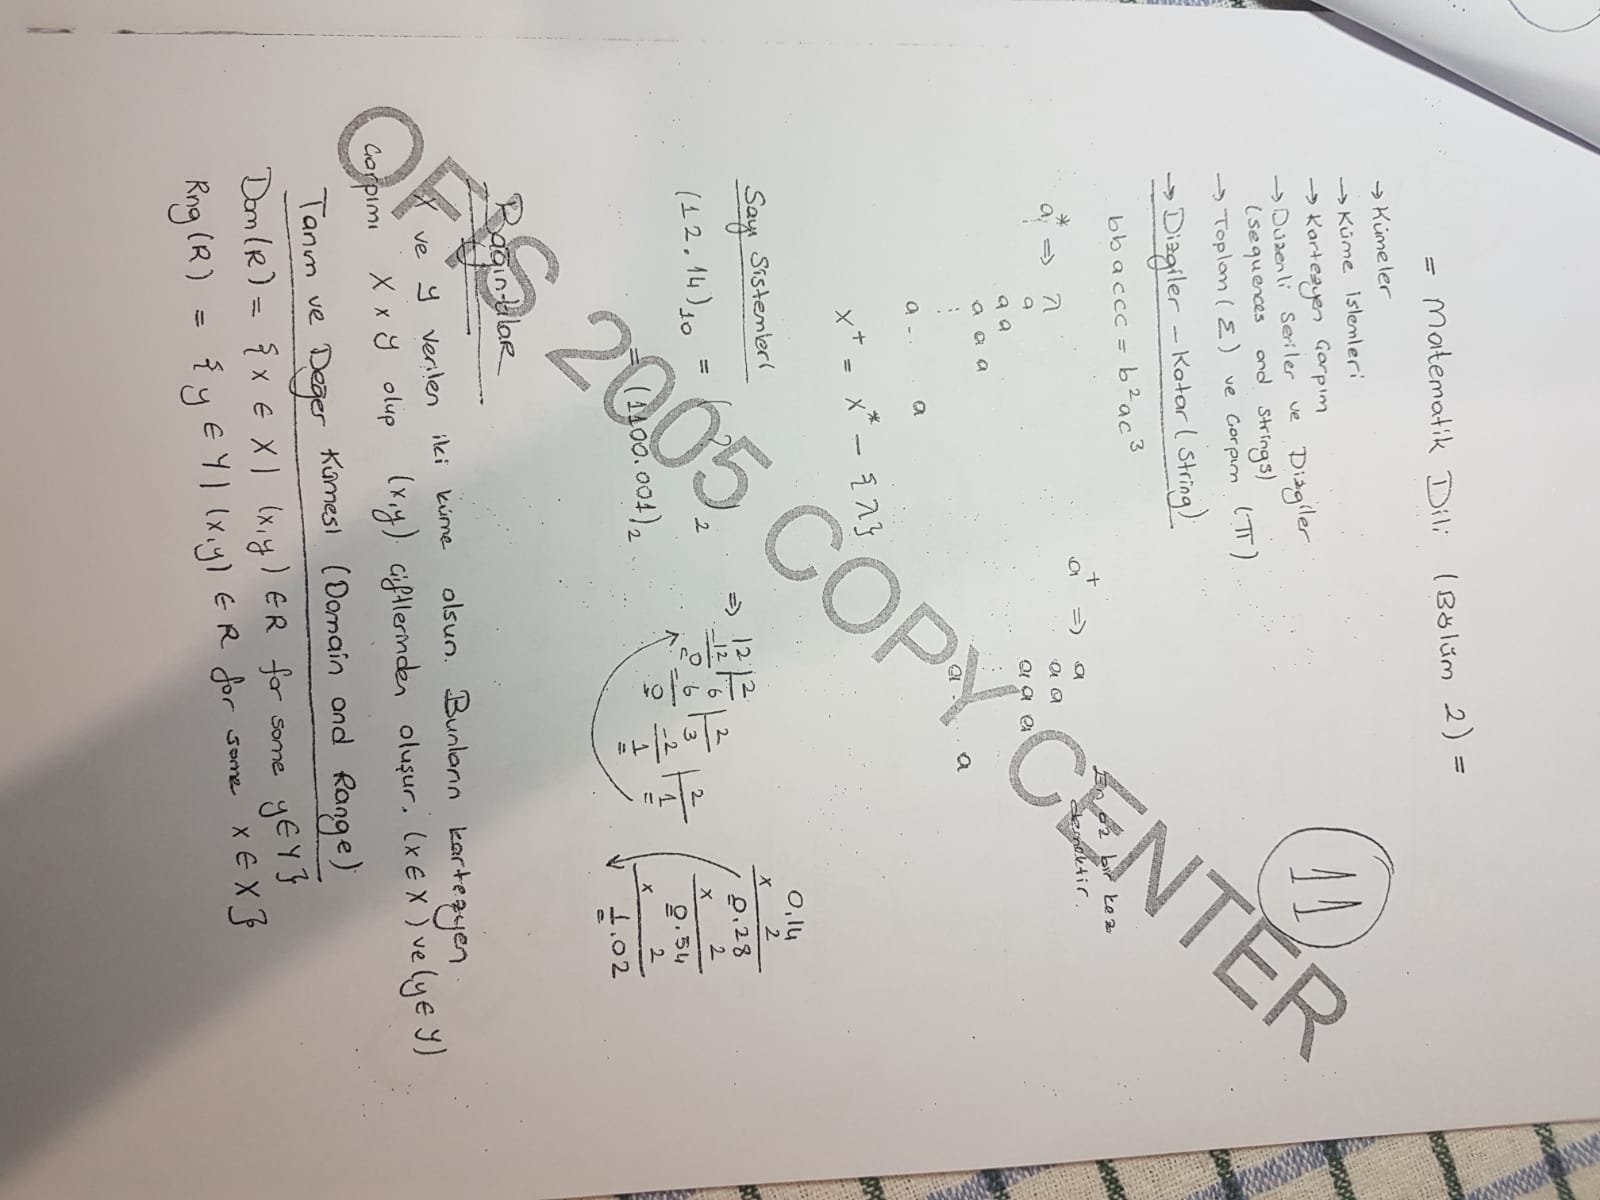 = Matematik Dili (Bölüm 2) =
11
→ Kümeler
→ Küme işlemleri
→ Kartezyen Çarpım
→ Düzenli Seriler ve Dizgiler
(sequences and strings)
→ Toplam (Σ) ve Çarpım (π)
→ Dizgiler - Katar (String)
bbaccc = b²ac³
En az bir kez
demektir.
a* ⇒ λ
a
aa
aaa
⋮
a... a
a⁺ ⇒ a
aa
aaa
⋮
a.... a
x⁺ = x* - {λ}
Sayı Sistemleri
(12.14)₁₀ = ( ? )₂
= (1100.001)₂
⇒ 12 | 2
-12 6 | 2
0 -6 3 | 2
0 -2 1
1
0,14
x 2
0.28
x 2
0.54
x 2
1.02
Bağıntılar
X ve Y verilen iki küme olsun. Bunların kartezyen
çarpımı X x Y olup (x,y) çiftlerinden oluşur. (x ∈ X) ve (y ∈ Y)
Tanım ve Değer Kümesi (Domain and Range)
Dom(R) = {x ∈ X | (x,y) ∈ R for some y ∈ Y}
Rng(R) = {y ∈ Y | (x,y) ∈ R for some x ∈ X}
OFİS 2005 COPY CENTER